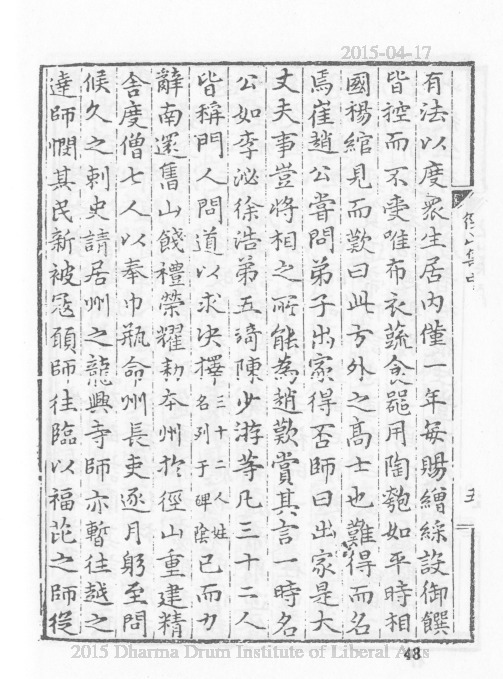 2015-04-17
有法以度衆生居内僅一年每賜繒綵設御饌
皆控而不受唯布衣蔬食器用陶匏如平時相
國楊綰見而歎曰此方外之高士也難得而名
焉崔趙公嘗問弟子出家得否師曰出家是大
丈夫事豈將相之所能為趙歎賞其言一時名
公如李泌徐浩第五琦陳少游等凡三十二人
皆稱門人問道以求決擇三十二人姓名列于碑陰已而力
辭南還舊山餞禮榮耀勅本州於徑山重建精
舍度僧七人以奉巾瓶命州長吏逐月躬至問
候久之刺史請居州之龍興寺師亦暫往越之
達師憫其民新被寇願師往臨以福芘之師從
徑山集中
五
2015 Dharma Drum Institute of Liberal Arts
43